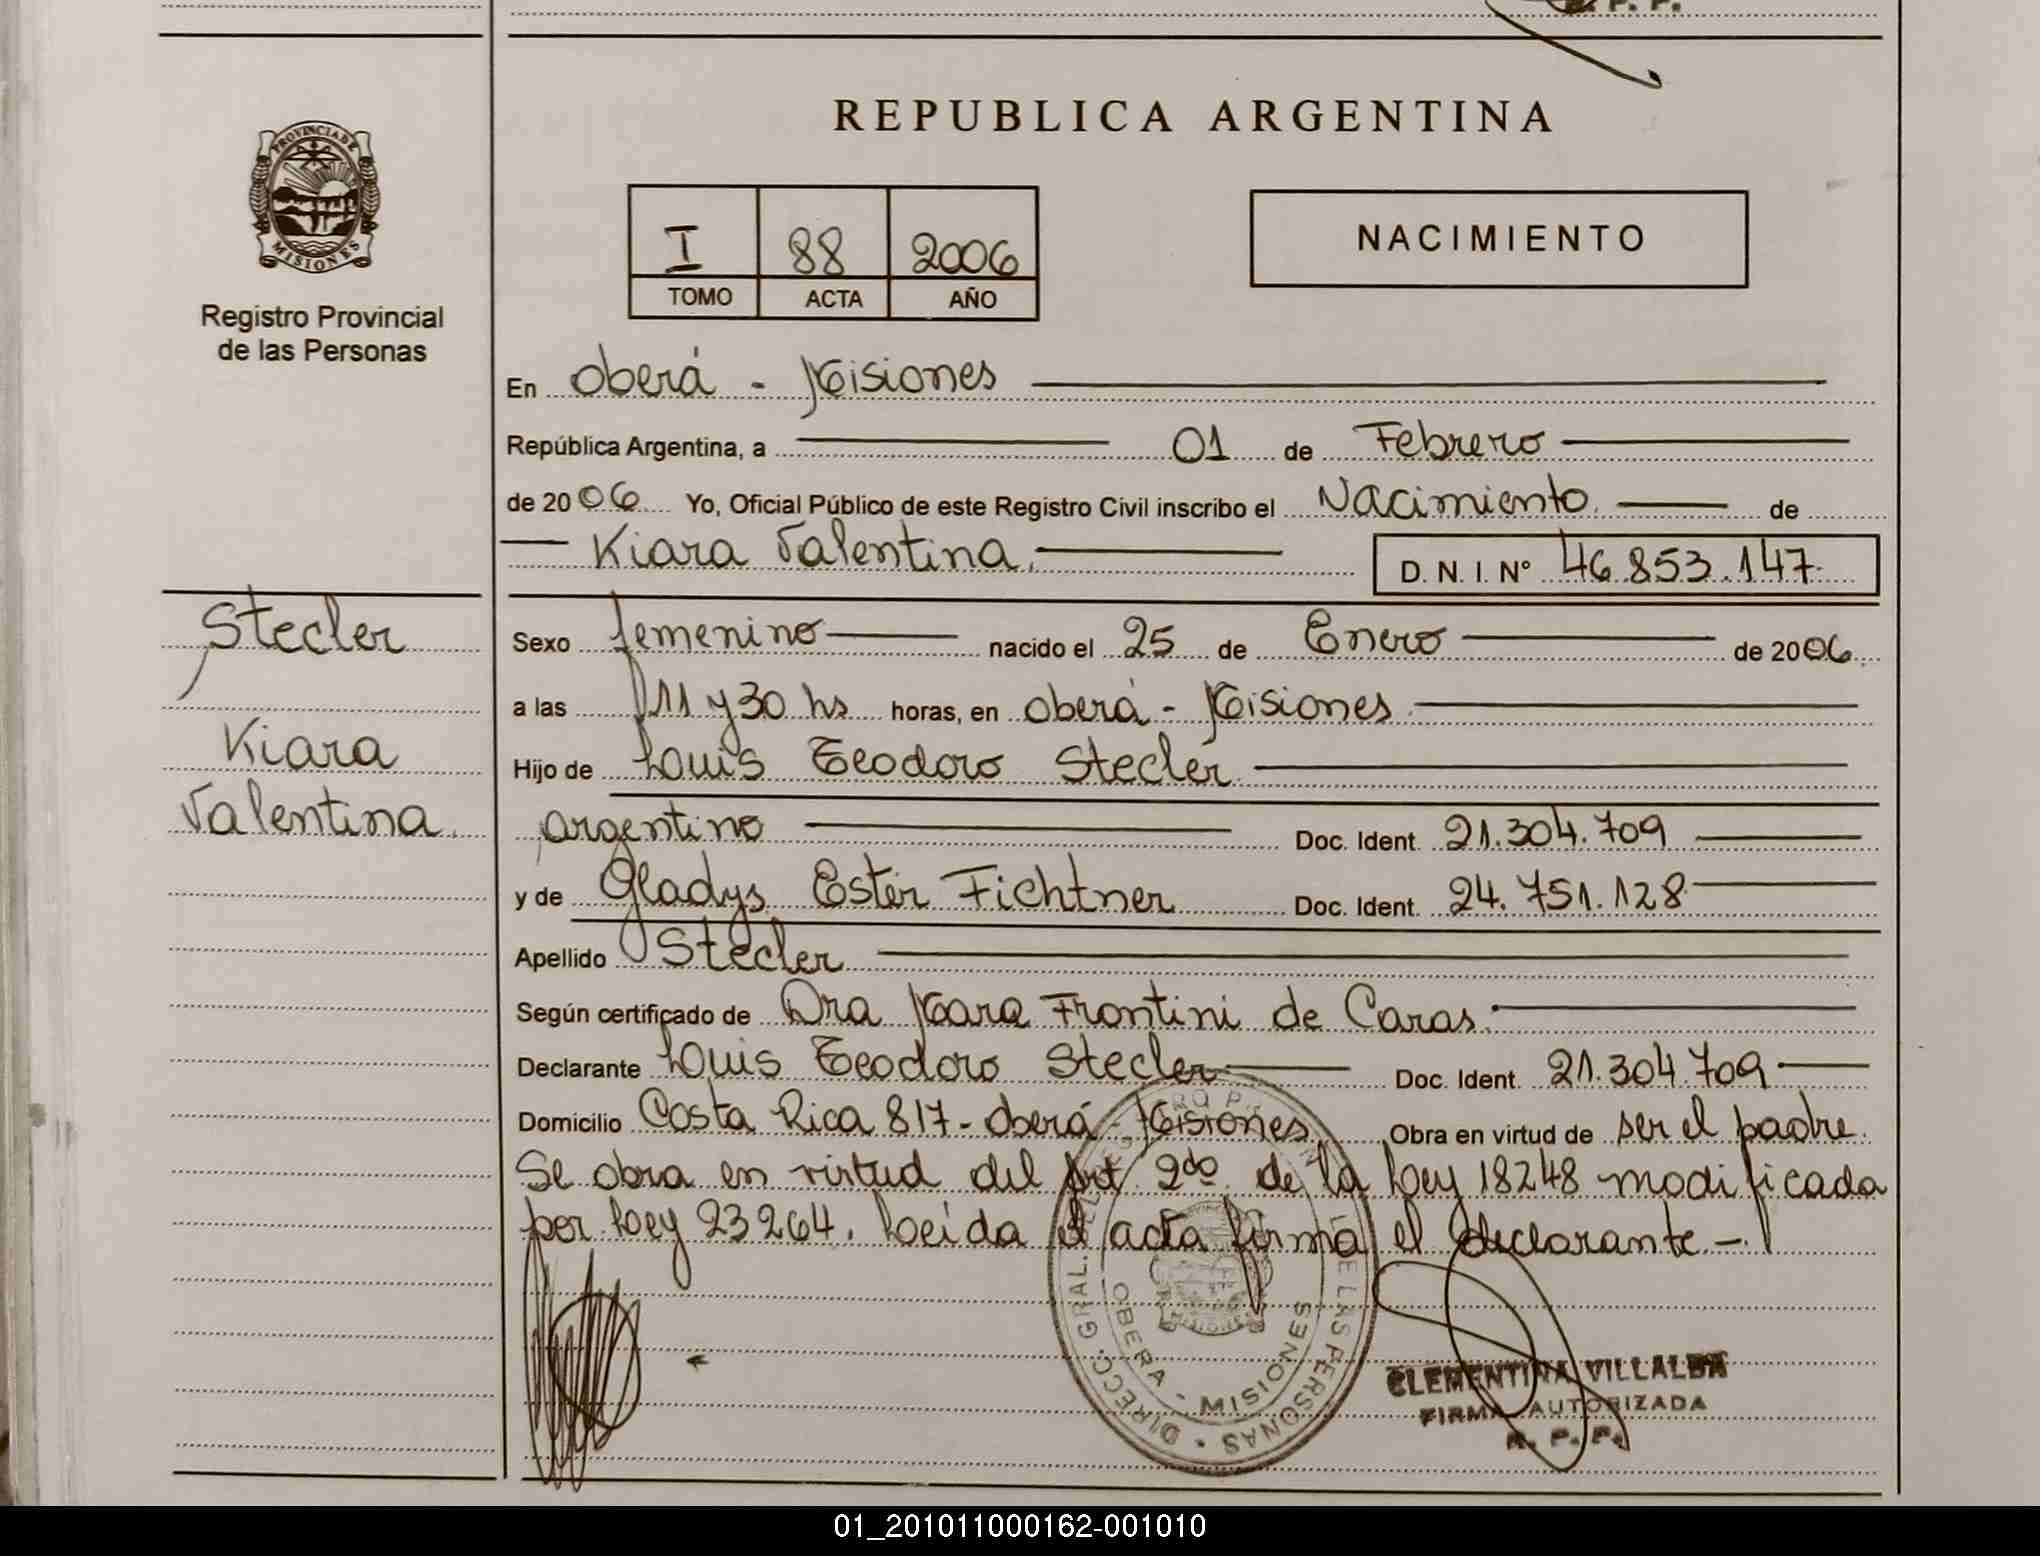 R. P. P.
REPUBLICA ARGENTINA
PROVINCIA DE
MISIONES
Registro Provincial
de las Personas
I 88 2006
TOMO ACTA AÑO
NACIMIENTO
En Oberá - Misiones
República Argentina, a 01 de Febrero
de 2006 Yo, Oficial Público de este Registro Civil inscribo el Nacimiento de
Kiara Valentina. D. N. I. Nº 46.853.147
Stecler
Kiara
Valentina.
Sexo femenino nacido el 25 de Enero de 2006.
a las 11 y 30 hs horas, en Oberá - Misiones
Hijo de Louis Teodoro Stecler
argentino Doc. Ident. 21.304.709
y de Gladys Ester Fichtner Doc. Ident. 24.751.128
Apellido Stecler
Según certificado de Dra Mara Frontini de Caras.
Declarante Louis Teodoro Stecler Doc. Ident. 21.304.709
Domicilio Costa Rica 817 - Oberá - Misiones Obra en virtud de ser el padre.
Se obra en virtud del Art 2do de la Ley 18248 modificada
por Ley 23264. Leída el acta firma el declarante -.
DIRECC. GRAL. DE LAS PERSONAS
OBERA - MISIONES
MISIONES
CLEMENTINA VILLALBA
FIRMA AUTORIZADA
R. P. P.
01_201011000162-001010